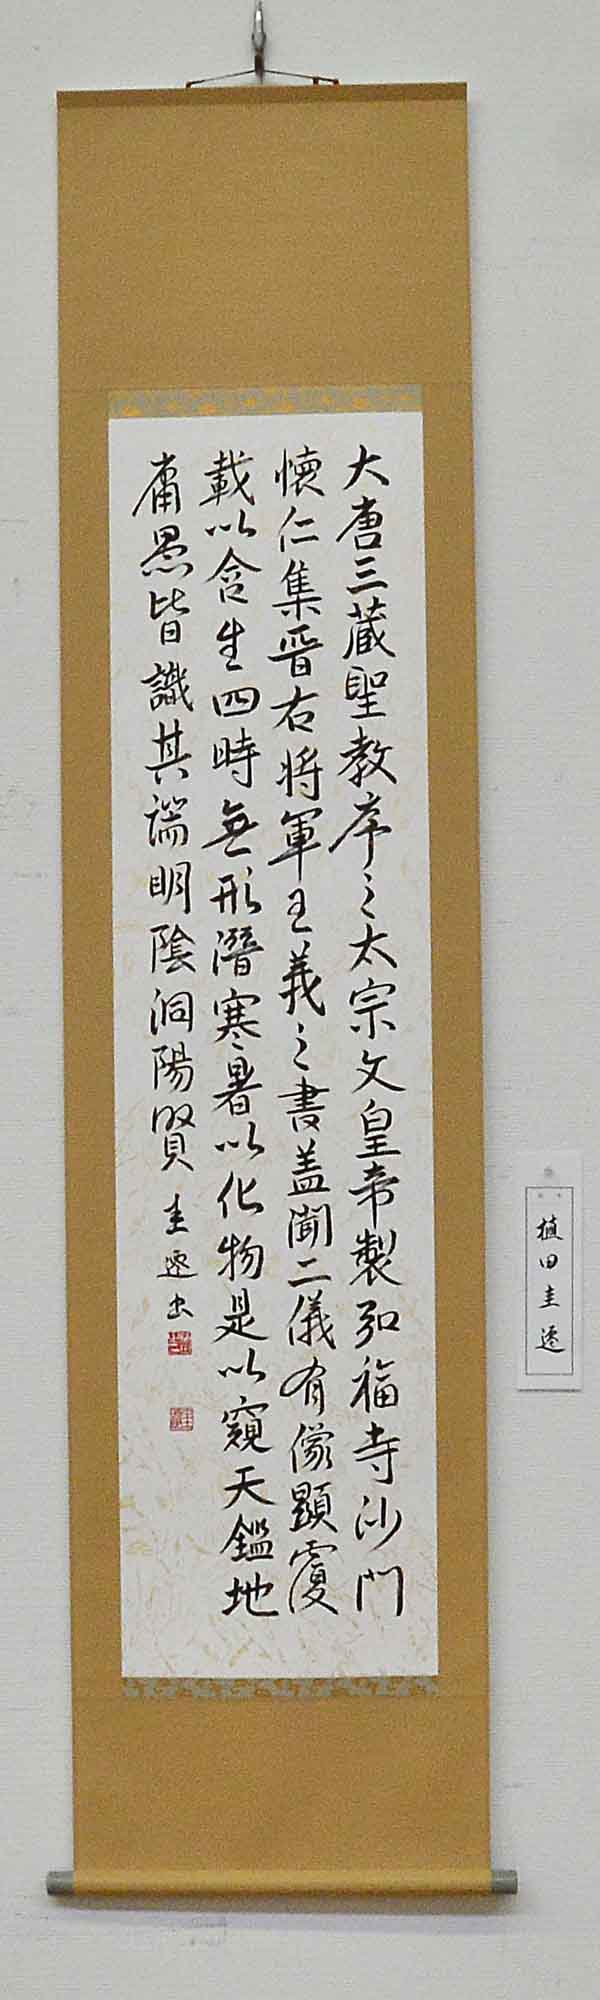 大唐三蔵聖教序之太宗文皇帝製弘福寺沙門
懐仁集晋右将軍王羲之書盖聞二儀有像顕覆
載以含生四時無形潜寒暑以化物是以窺天鑑地
庸愚皆識其端明陰洞陽賢 圭遥書
植田圭遥